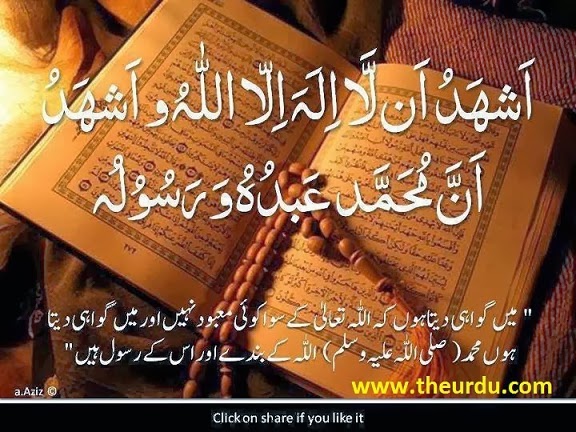 اَشهَدُ اَن لَّا اِلٰهَ اِلَّا اللّٰهُ و اَشهَدُ
اَنَّ مُحَمَّد عَبدُهُ وَ رَسُولُہ
" میں گواہی دیتا ہوں کہ اللہ تعالٰی کے سوا کوئی معبود نہیں اور میں گواہی دیتا
ہوں محمد ( صلی اللہ علیہ وسلم) اللہ کے بندے اور اس کے رسول ہیں "
a.Aziz ©
www.theurdu.com
Click on share if you like it